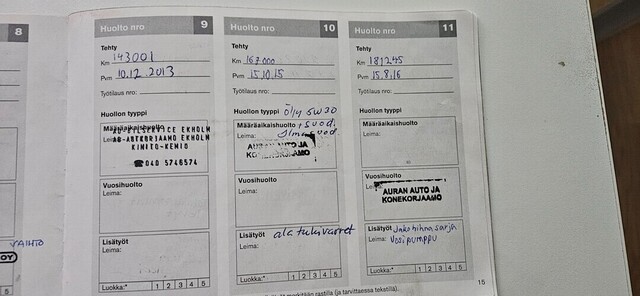 8
VAIHTO
OY
Huolto nro 9
Tehty
Km 143001
Pvm 10.12.2013
Työtilaus nro:
Huollon tyyppi
Määräaikaishuolto
AB BILSERVICE EKHOLM
AB-AUTOKORJAAMO EKHOLM
KIMITO-KEMIÖ
☎040 5746574
Vuosihuolto
Leima:
Lisätyöt
Leima:
Luokka:* 1 2 3 4 5
Huolto nro 10
Tehty
Km 167000
Pvm 15.10.15
Työtilaus nro:
Huollon tyyppi Öljy 5W30
Määräaikaishuolto + suod.
Leima: Ilmansuod.
AURAN AUTO JA
KONEKORJAAMO
Vuosihuolto
Leima:
Lisätyöt alatukivarret
Leima:
Luokka:* 1 2 3 4 5
Huolto nro 11
Tehty
Km 181245
Pvm 15.8.16
Työtilaus nro:
Huollon tyyppi
Määräaikaishuolto
Leima:
Vuosihuolto
Leima:
AURAN AUTO JA
KONEKORJAAMO
Lisätyöt Jakohihnasarja
Leima: Vesipumppu
Luokka:* 1 2 3 4 5
merkitään rastilla (ja tarvittaessa tekstillä).
15